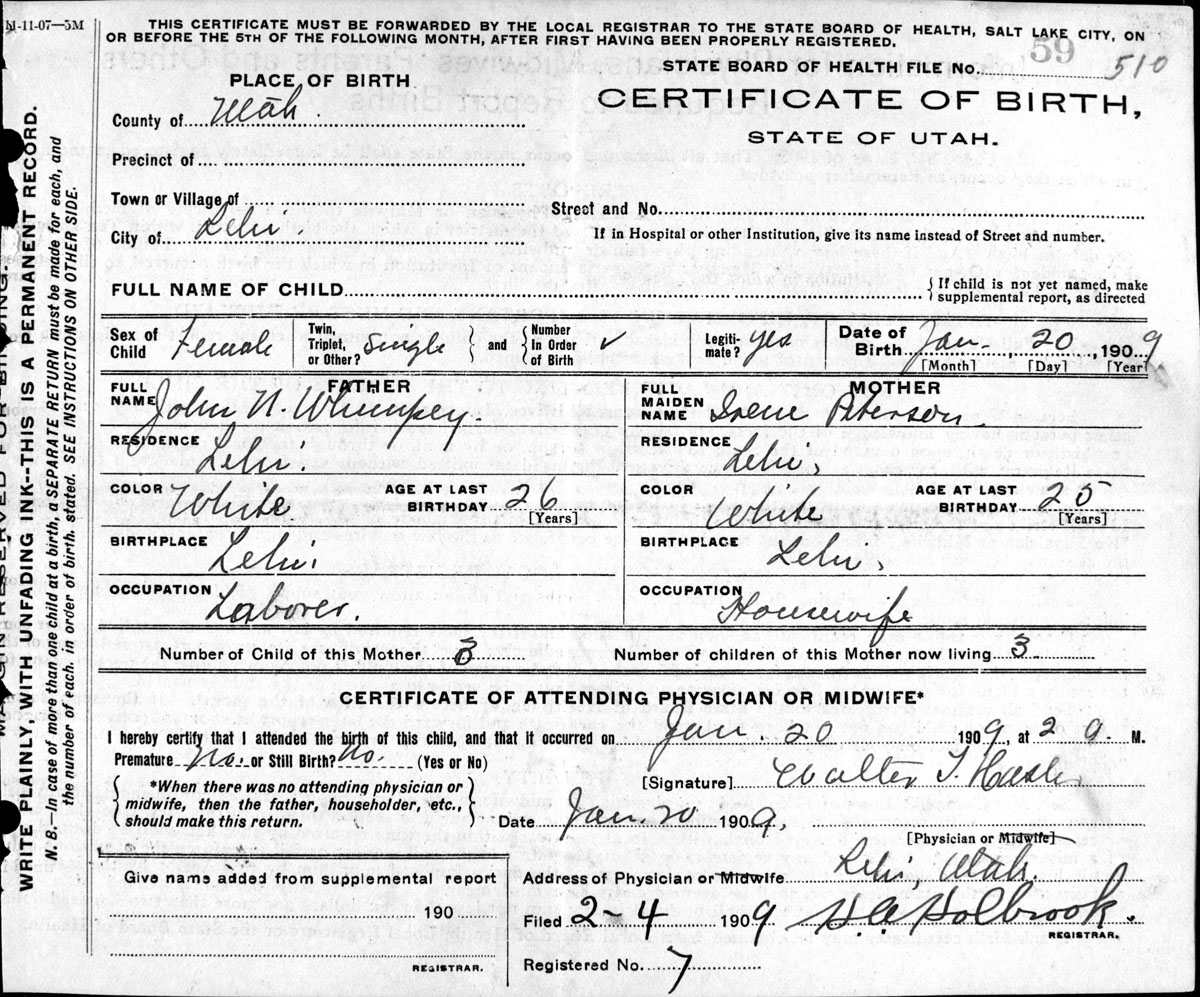 M-11-07—5M
THIS CERTIFICATE MUST BE FORWARDED BY THE LOCAL REGISTRAR TO THE STATE BOARD OF HEALTH, SALT LAKE CITY, ON
OR BEFORE THE 5TH OF THE FOLLOWING MONTH, AFTER FIRST HAVING BEEN PROPERLY REGISTERED.
59
STATE BOARD OF HEALTH FILE NO. 510
PLACE OF BIRTH
CERTIFICATE OF BIRTH,
STATE OF UTAH.
County of Utah.
Precinct of
Town or Village of
Street and No.
City of Lehi
If in Hospital or other Institution, give its name instead of Street and number.
FULL NAME OF CHILD
{ If child is not yet named, make
supplemental report, as directed
Sex of Child Female
Twin, Triplet, or Other? single } and { Number In Order of Birth ✓
Legiti-mate? yes
Date of Birth Jan. 20, 1909
[Month] [Day] [Year]
FATHER
FULL NAME John N. Whimpey.
MOTHER
FULL MAIDEN NAME Irene Peterson.
RESIDENCE Lehi.
RESIDENCE Lehi,
COLOR White AGE AT LAST BIRTHDAY 26 [Years]
COLOR White AGE AT LAST BIRTHDAY 25 [Years]
BIRTHPLACE Lehi.
BIRTHPLACE Lehi.
OCCUPATION Laborer.
OCCUPATION Housewife
Number of Child of this Mother 3
Number of children of this Mother now living 3.
CERTIFICATE OF ATTENDING PHYSICIAN OR MIDWIFE*
I hereby certify that I attended the birth of this child, and that it occurred on Jan. 20 1909, at 2 a. M.
Premature No. or Still Birth? No. (Yes or No)
[Signature] Walter T. Hasler
{ *When there was no attending physician or
midwife, then the father, householder, etc.,
should make this return. }
Date Jan. 20 1909,
[Physician or Midwife]
Give name added from supplemental report
190
REGISTRAR.
Address of Physician or Midwife Lehi, Utah.
Filed 2-4 1909 H.C. Holbrook.
REGISTRAR.
Registered No. 7
WRITE PLAINLY WITH UNFADING INK--THIS IS A PERMANENT RECORD.
N. B.—In case of more than one child at a birth, a SEPARATE RETURN must be made for each, and
the number of each, in order of birth, stated. SEE INSTRUCTIONS ON OTHER SIDE.